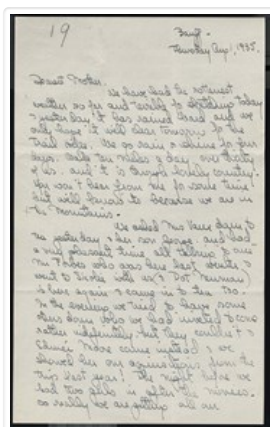 19
Banff
Thursday Aug 1, 1935.
Dearest Mother.
We have had the rottenest
weather so far and terrible for sketching today
& yesterday it has rained hard and we
only hope it will clear tomorrow for the
trail ride. We go rain or shine for four
days. only ten miles a day, over thirty
of us. and it is through lovely country.
You won't hear from me for some time
but will know it is because we are in
the mountains.
We asked Mrs
yesterday & her son George, and had
a very pleasant time, all talking to one
who was here last winter &
went to with us.
is here again & came in to tea too.
In the evening we tried to have some
others down who we had invited to come
rather indefinitely, but they couldn't &
Moore came instead & we
showed her our from the
this last year! The night before we
had two girls in after the
so really we are getting all our